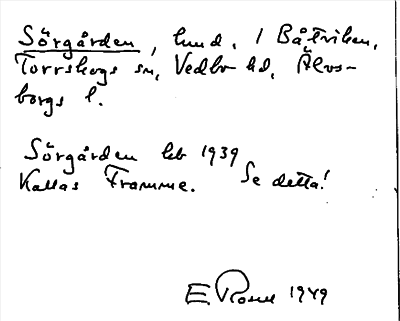 Sörgården, hmd. i Båtviken,
Torrskogs sn, Vedbo hd, Älvs-
borgs l.
Sörgården lib 1939
Kallas Framme. Se detta!
E Rosell 1949